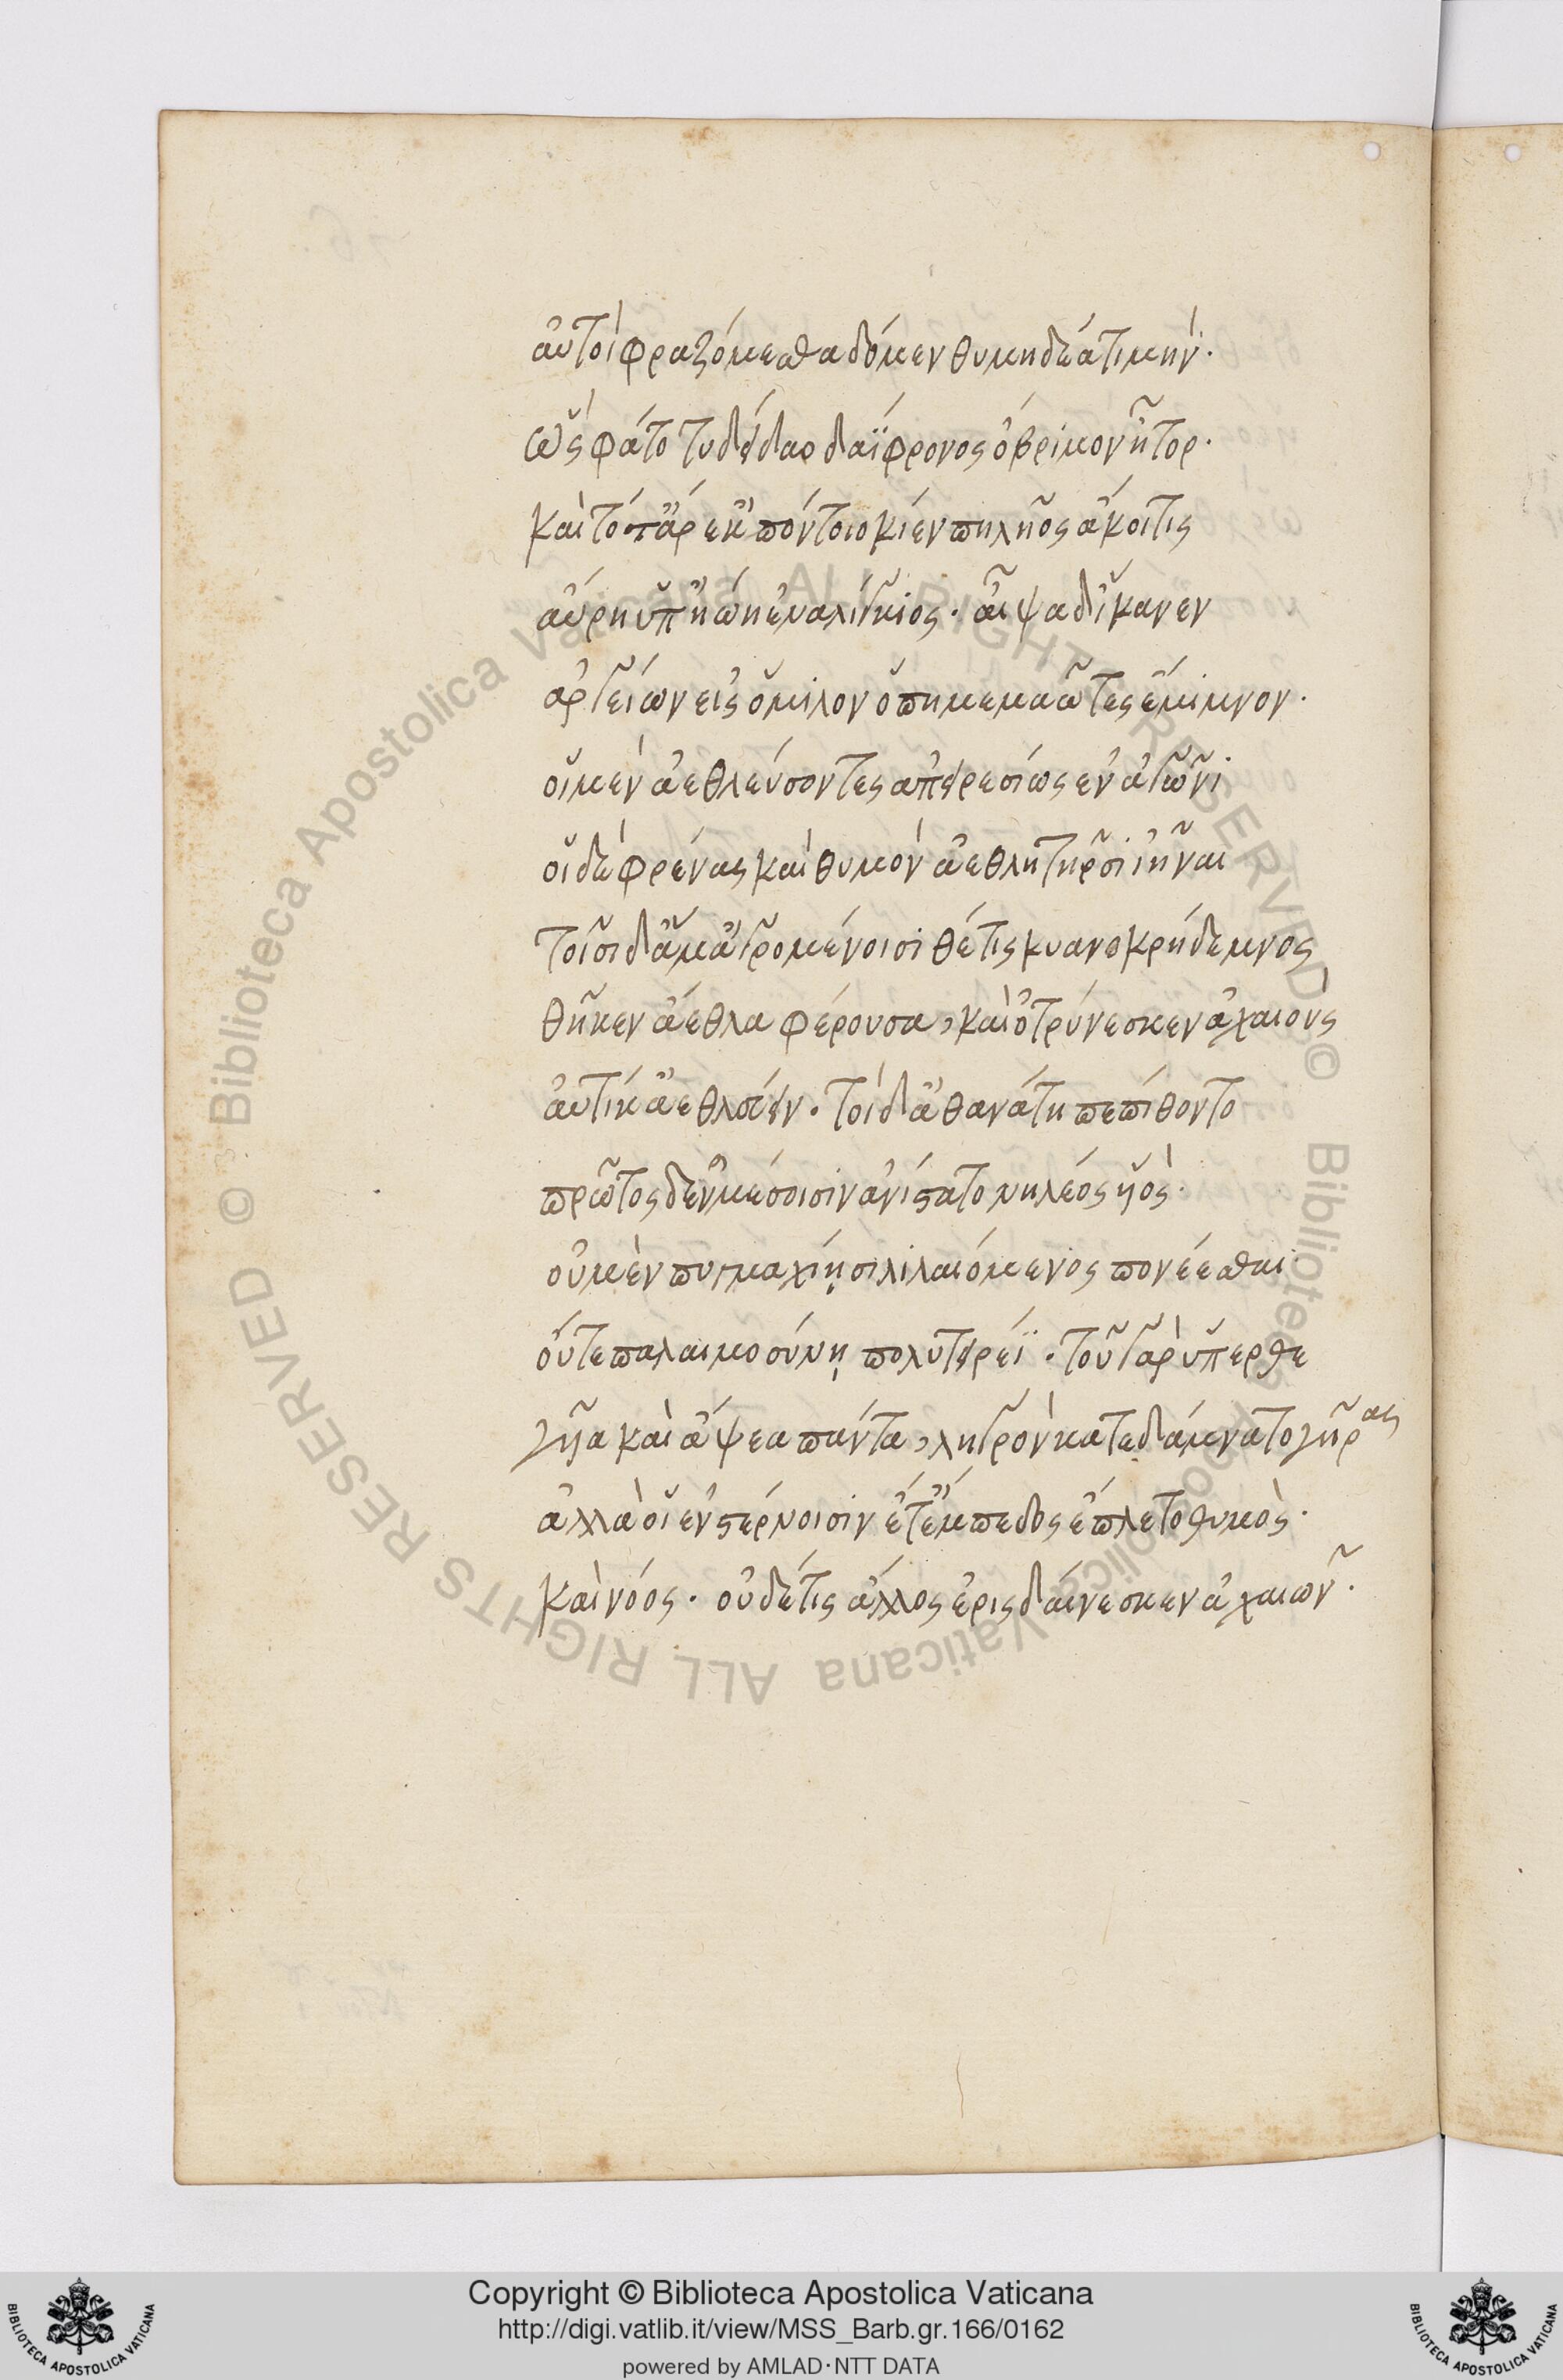 αὐτοὶ φραζόμεσθα δόμεν θυμηδέα τιμήν·
ὣς φάτο τυδείδαο δαΐφρονος ὄβριμον ἦτορ·
καὶ τότ' ἄρ' ἐκ πόντοιο κίεν πηλῆος ἄκοιτις
αὔρη ὑπ' ἠώη ἐναλίγκιος· αἶψα δ' ἵκανεν
ἀργείων εἰς ὅμιλον ὅπη μεμαῶτες ἔμιμνον·
οἱ μὲν ἀεθλεύσοντες ἀπειρεσίως ἐν ἀγῶνι
οἱ δὲ φρένας καὶ θυμὸν ἀεθλητῆρσι ἰῆναι
τοῖσι δ' ἅμ' ἀγρομένοισι θέτις κυανοκρήδεμνος
θῆκεν ἄεθλα φέρουσα, καὶ ὀτρύνεσκεν ἀχαιοὺς
αὐτίκ' ἀεθλεύειν· τοὶ δ' ἀθανάτη πεπίθοντο
πρῶτος δ' ἐν μέσοισιν ἀνίστατο νηλέος υἱός·
οὐ μὲν πυγμαχίῃσι λιλαιόμενος πονέεσθαι·
οὔτε παλαιμοσύνῃ πολυτειρέϊ· τοῦ γὰρ ὕπερθε
γυῖα καὶ ἅψεα πάντα, λυγρὸν κατεδάμνατο γῆρας
ἀλλά οἱ ἐν στέρνοισιν ἔτ' ἔμπεδος ἔπλετο θυμὸς·
καὶ νόος· οὐδέ τις ἄλλος ἐριςδαίνεσκεν ἀχαιῶν·
Copyright © Biblioteca Apostolica Vaticana
http://digi.vatlib.it/view/MSS_Barb.gr.166/0162
powered by AMLAD·NTT DATA